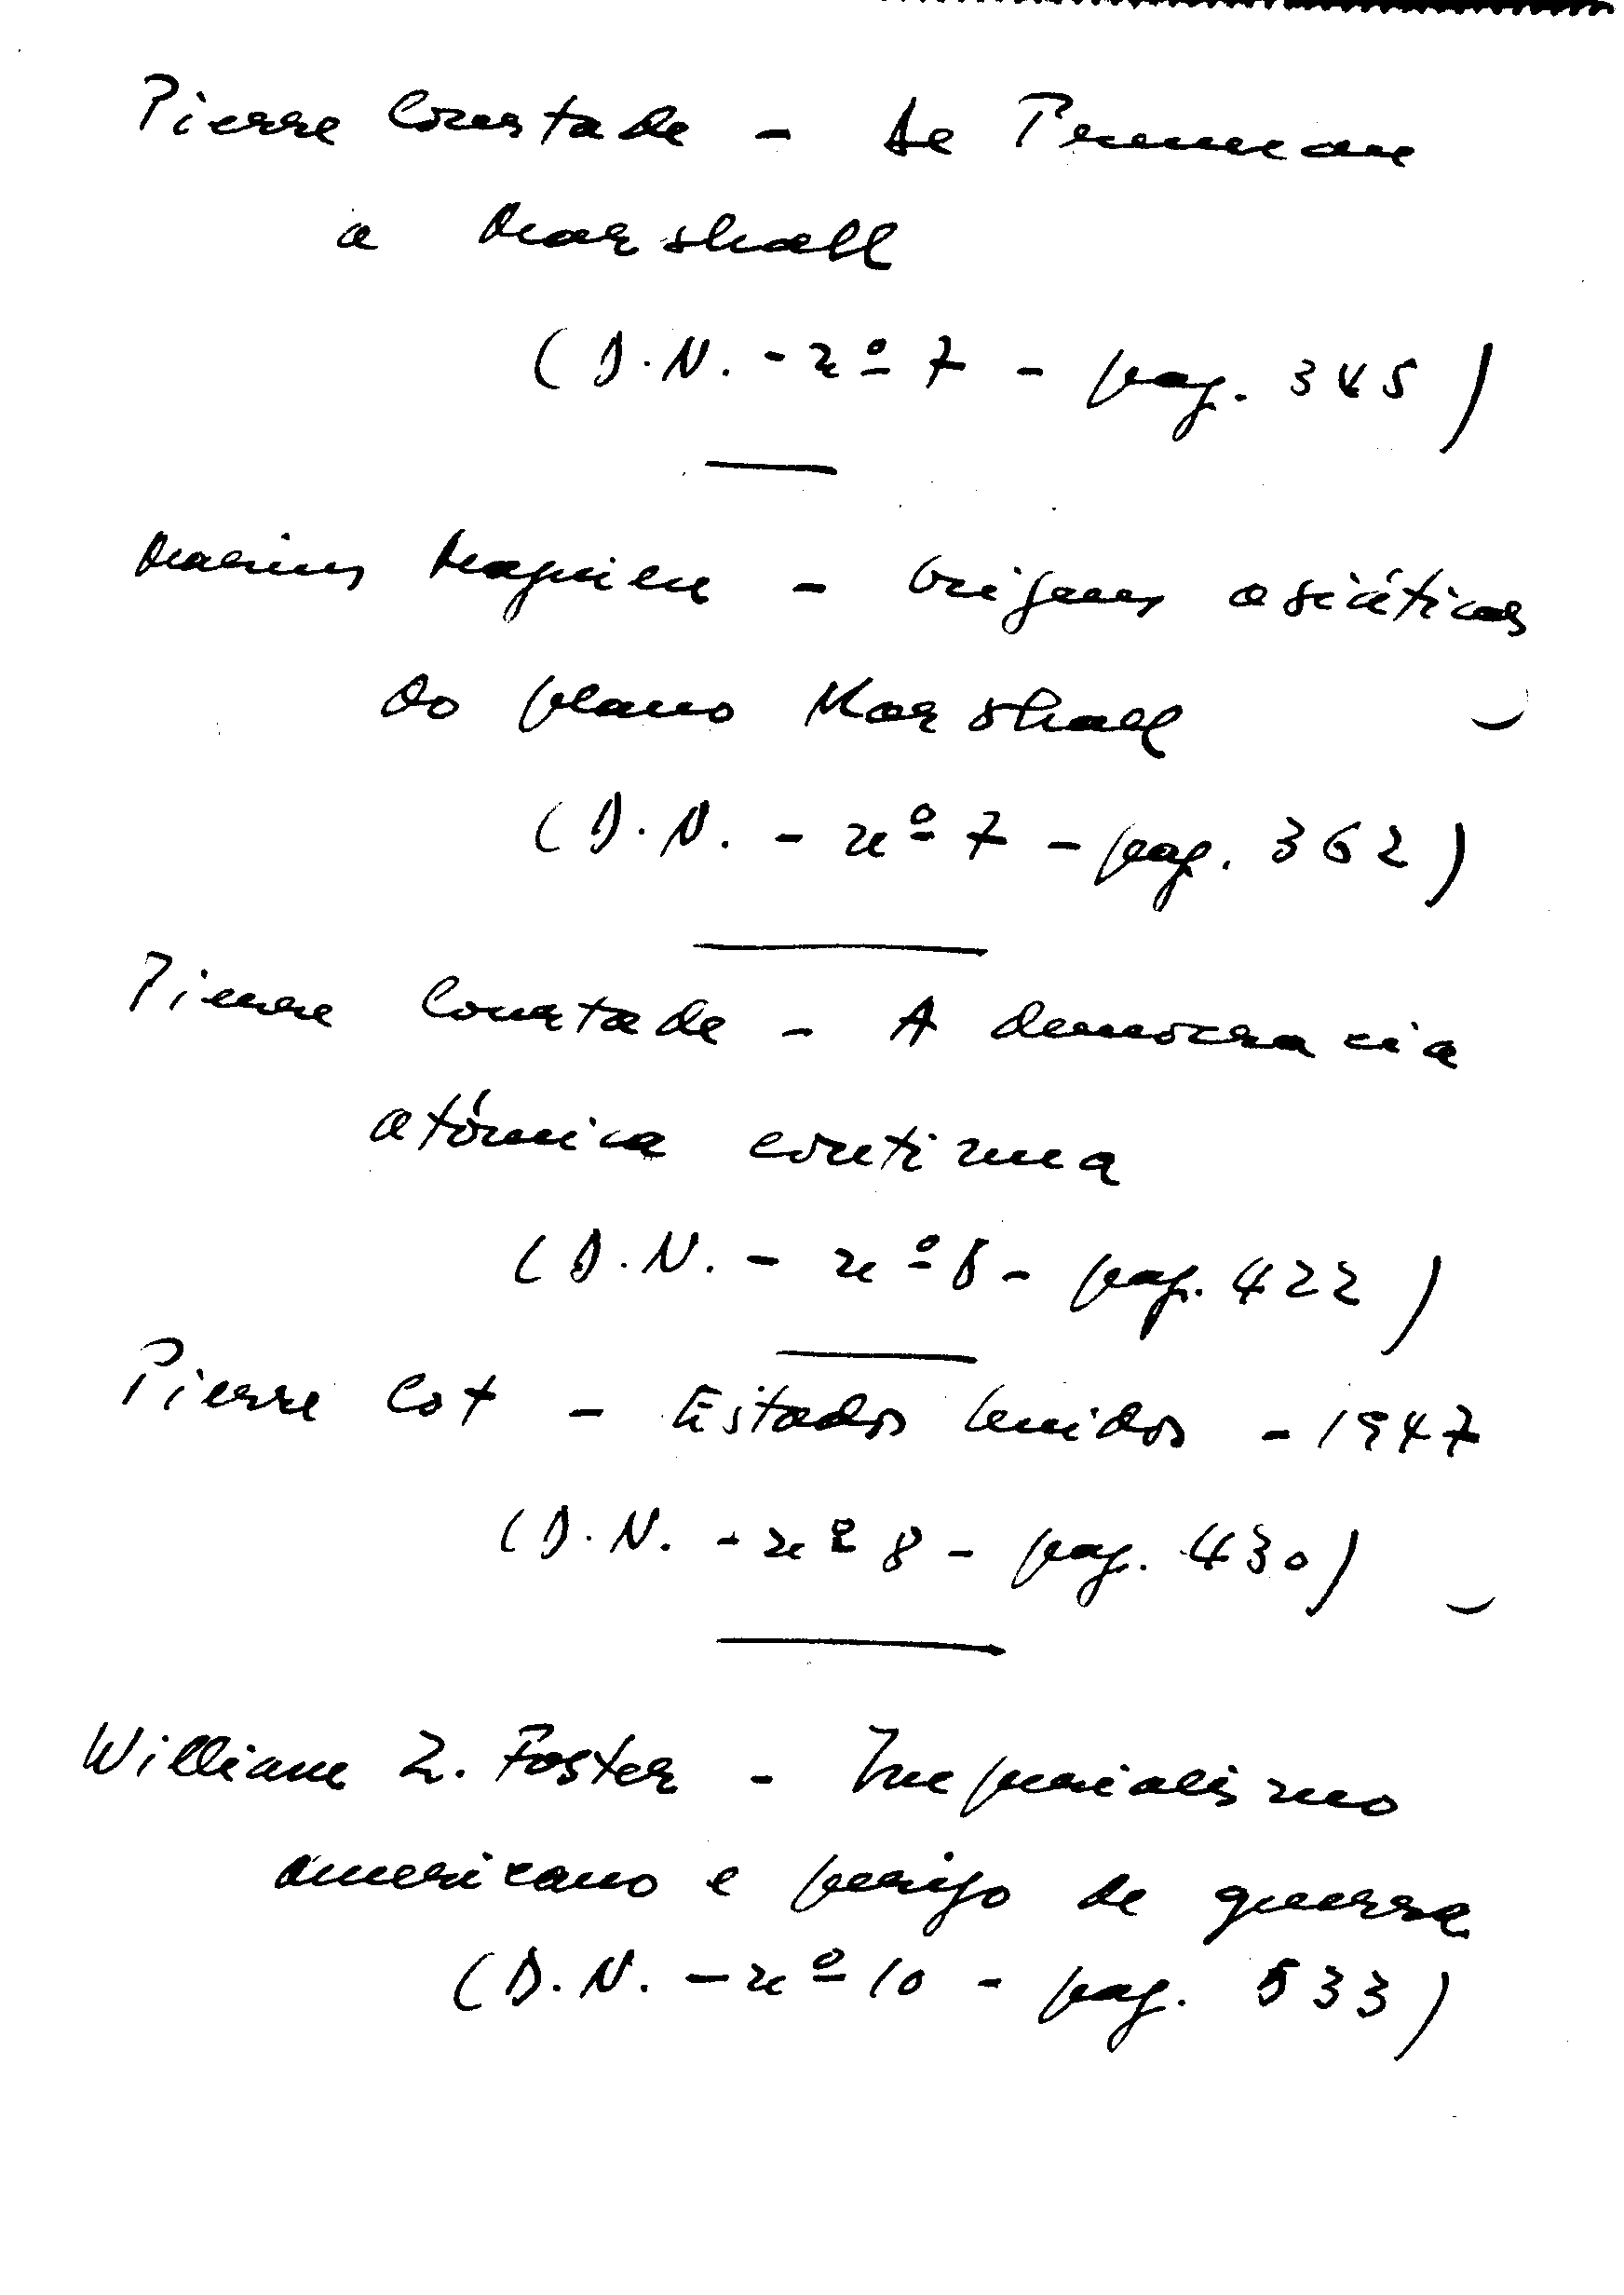 Pierre Courtade - De Truman
a Marshall
(D.N. - nº 7 - pag. 345)
Marius Magnien - Origens asiáticas
do plano Marshall
(D.N. - nº 7 - pag. 362)
Pierre Courtade - A democracia
atómica continua
(D.N. - nº 8 - pag. 422)
Pierre Cot - Estados Unidos - 1947
(D.N. - nº 8 - pag. 430)
William Z. Foster - Imperialismo
americano e perigo de guerra
(D.N. - nº 10 - pag. 533)